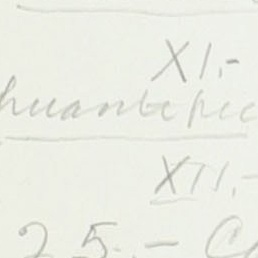 XI.-
huantepec
XII.-
25.- C